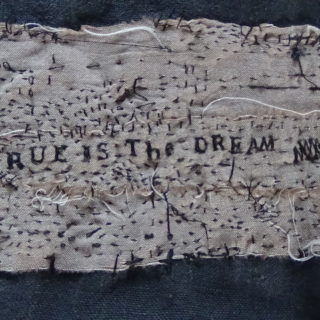 RUE IS The DREAM